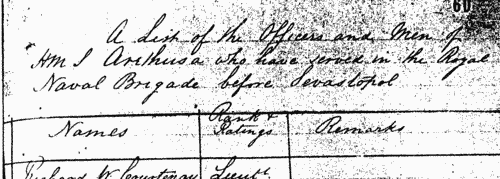 60
A List of the Officers and Men of
HMS Arethusa who have served in the Royal
Naval Brigade before Sevastopol
Names
Rank & Ratings
Remarks
Richard W Courtenay Lieut